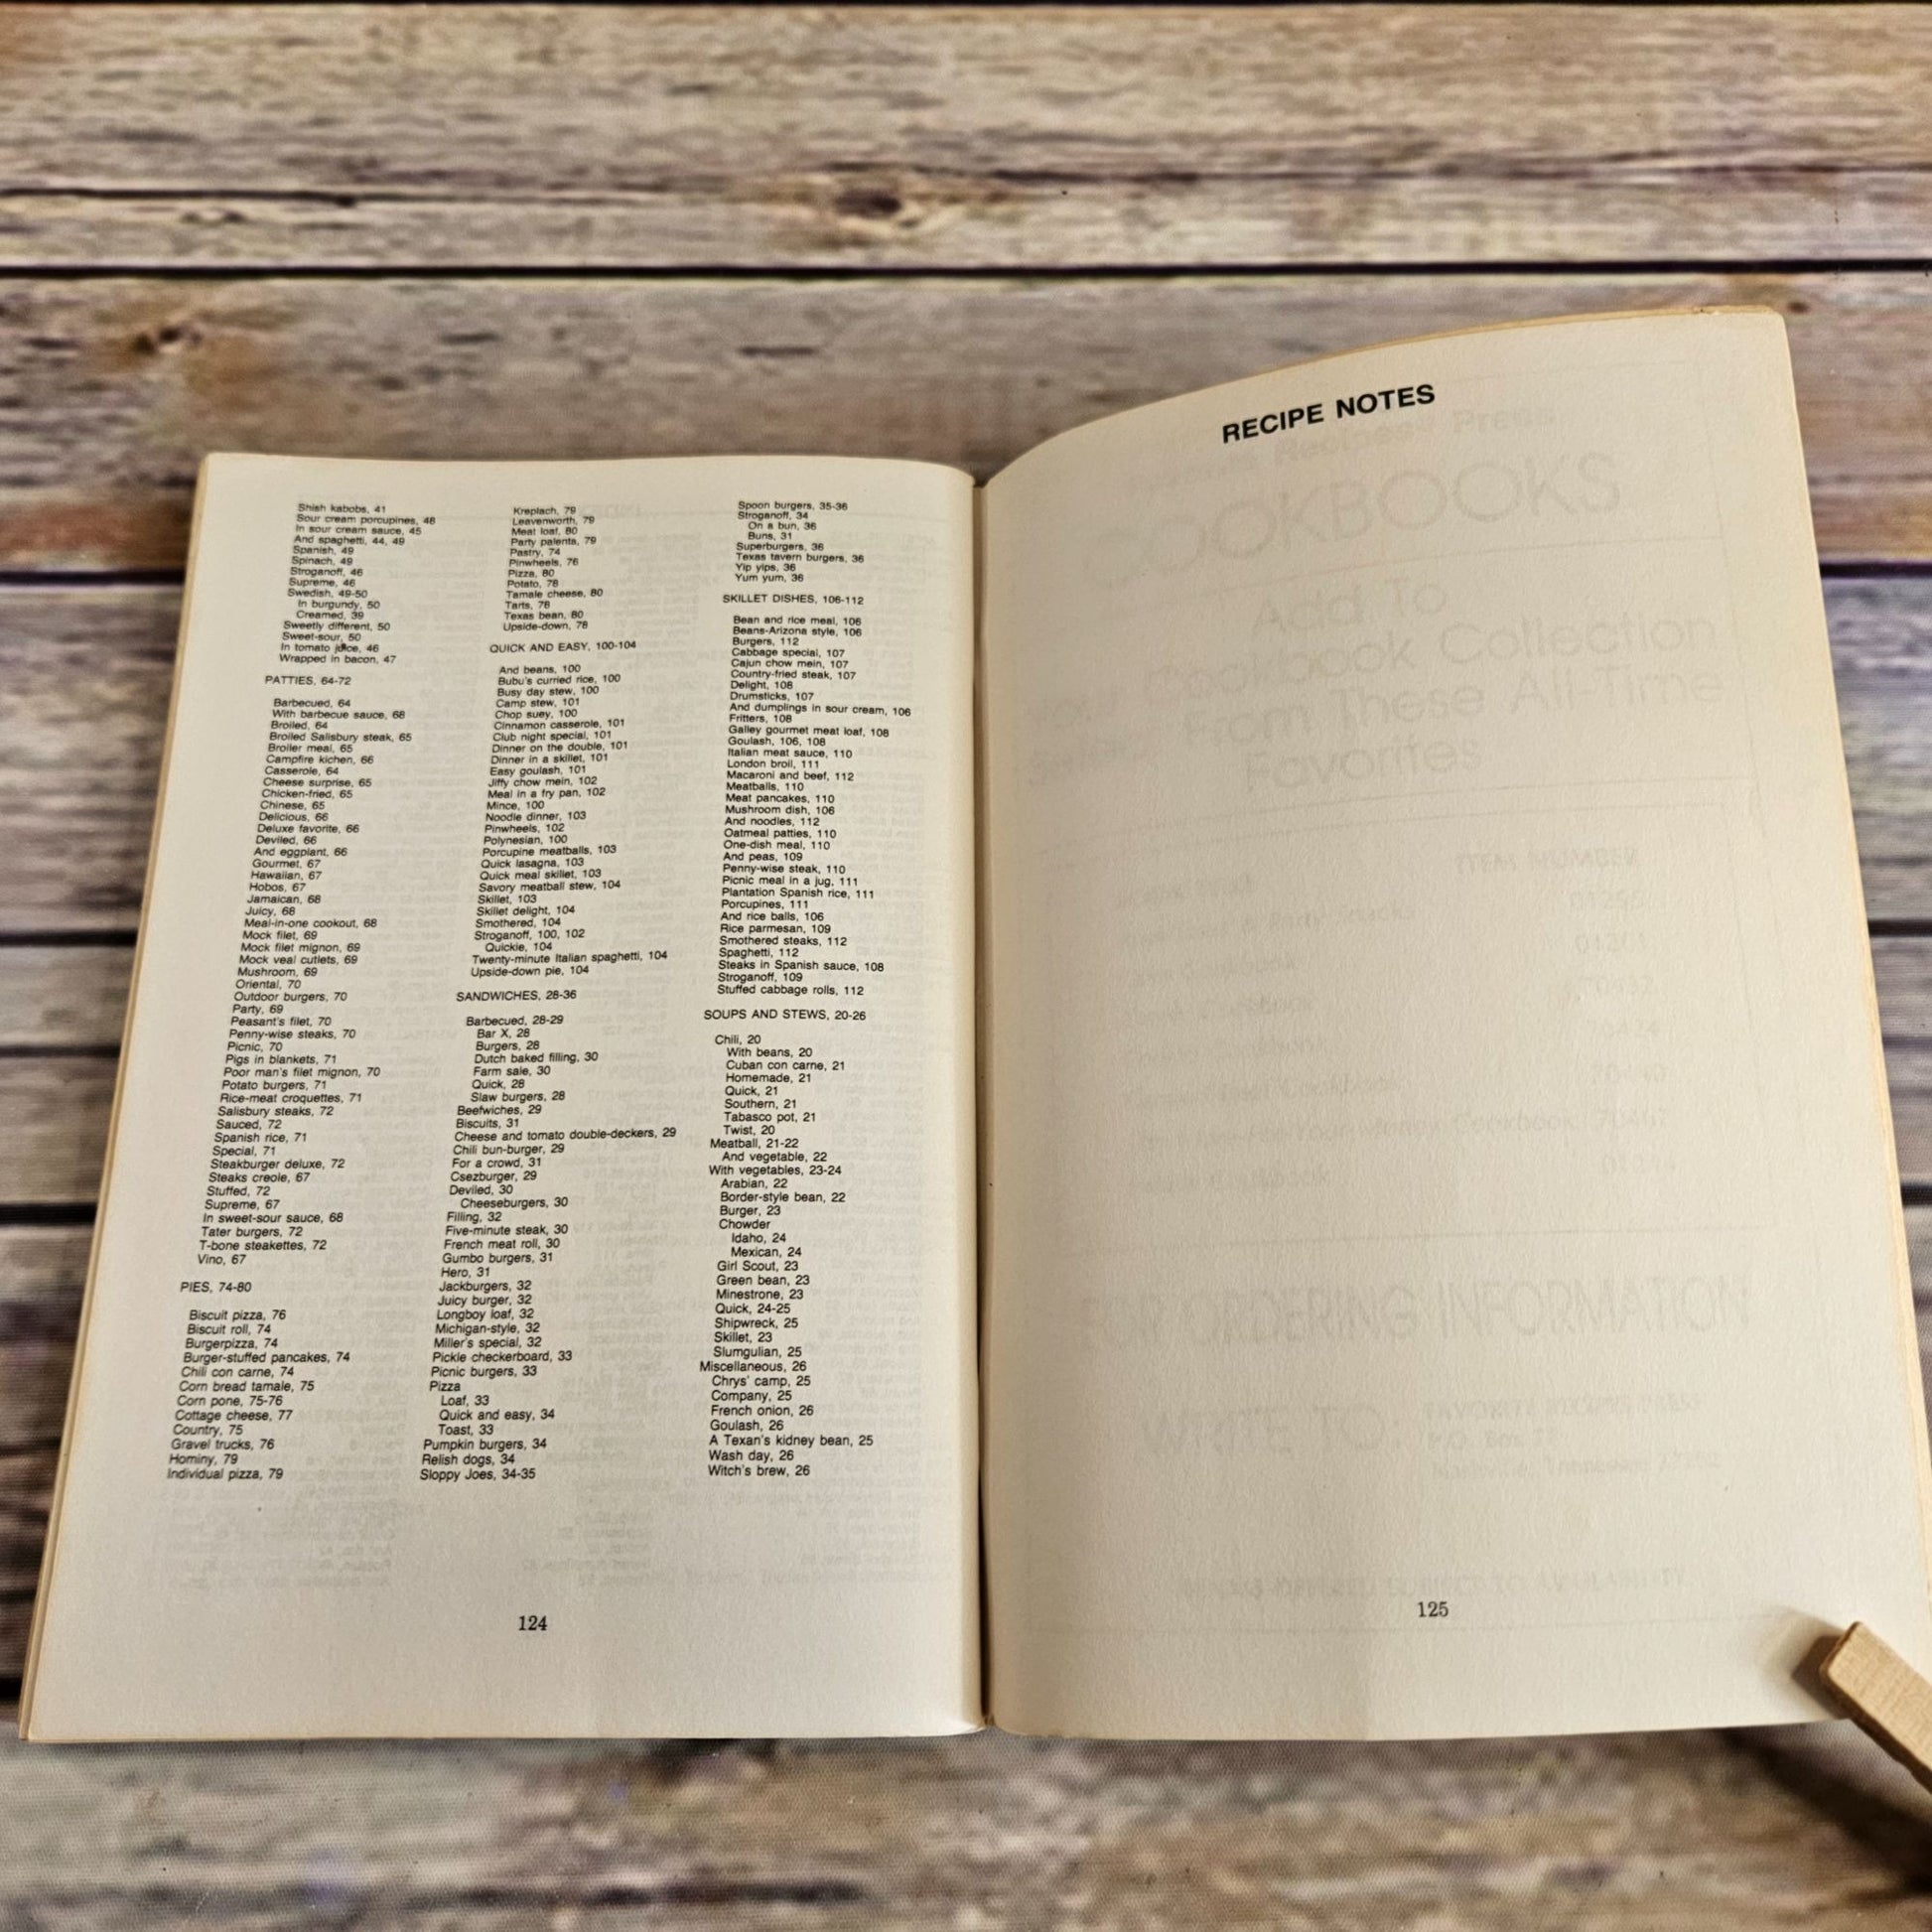 Shish kabobs, 41
Sour cream porcupines, 48
In sour cream sauce, 45
And spaghetti, 44, 49
Spanish, 49
Spinach, 49
Stroganoff, 46
Supreme, 46
Swedish, 49-50
In burgundy, 50
Creamed, 39
Sweetly different, 50
Sweet-sour, 50
In tomato juice, 46
Wrapped in bacon, 47
PATTIES, 64-72
Barbecued, 64
With barbecue sauce, 68
Broiled, 64
Broiled Salisbury steak, 65
Broiler meal, 65
Campfire kichen, 66
Casserole, 64
Cheese surprise, 65
Chicken-fried, 65
Chinese, 65
Delicious, 66
Deluxe favorite, 66
Deviled, 66
And eggplant, 66
Gourmet, 67
Hawaiian, 67
Hobos, 67
Jamaican, 68
Juicy, 68
Meal-in-one cookout, 68
Mock filet, 69
Mock filet mignon, 69
Mock veal cutlets, 69
Mushroom, 69
Oriental, 70
Outdoor burgers, 70
Party, 69
Peasant's filet, 70
Penny-wise steaks, 70
Picnic, 70
Pigs in blankets, 71
Poor man's filet mignon, 70
Potato burgers, 71
Rice-meat croquettes, 71
Salisbury steaks, 72
Sauced, 72
Spanish rice, 71
Special, 71
Steakburger deluxe, 72
Steaks creole, 67
Stuffed, 72
Supreme, 67
In sweet-sour sauce, 68
Tater burgers, 72
T-bone steakettes, 72
Vino, 67
PIES, 74-80
Biscuit pizza, 76
Biscuit roll, 74
Burgerpizza, 74
Burger-stuffed pancakes, 74
Chili con carne, 74
Corn bread tamale, 75
Corn pone, 75-76
Cottage cheese, 77
Country, 75
Gravel trucks, 76
Hominy, 79
Individual pizza, 79
Kreplach, 79
Leavenworth, 79
Meat loaf, 80
Party palenta, 79
Pastry, 74
Pinwheels, 76
Pizza, 80
Potato, 78
Tamale cheese, 80
Tarts, 78
Texas bean, 80
Upside-down, 78
QUICK AND EASY, 100-104
And beans, 100
Bubu's curried rice, 100
Busy day stew, 100
Camp stew, 101
Chop suey, 100
Cinnamon casserole, 101
Club night special, 101
Dinner on the double, 101
Dinner in a skillet, 101
Easy goulash, 101
Jiffy chow mein, 102
Meal in a fry pan, 102
Mince, 100
Noodle dinner, 103
Pinwheels, 102
Polynesian, 100
Porcupine meatballs, 103
Quick lasagna, 103
Quick meal skillet, 103
Savory meatball stew, 104
Skillet, 103
Skillet delight, 104
Smothered, 104
Stroganoff, 100, 102
Quickie, 104
Twenty-minute Italian spaghetti, 104
Upside-down pie, 104
SANDWICHES, 28-36
Barbecued, 28-29
Bar X, 28
Burgers, 28
Dutch baked filling, 30
Farm sale, 30
Quick, 28
Slaw burgers, 28
Beefwiches, 29
Biscuits, 31
Cheese and tomato double-deckers, 29
Chili bun-burger, 29
For a crowd, 31
Csezburger, 29
Deviled, 30
Cheeseburgers, 30
Filling, 32
Five-minute steak, 30
French meat roll, 30
Gumbo burgers, 31
Hero, 31
Jackburgers, 32
Juicy burger, 32
Longboy loaf, 32
Michigan-style, 32
Miller's special, 32
Pickle checkerboard, 33
Picnic burgers, 33
Pizza
Loaf, 33
Quick and easy, 34
Toast, 33
Pumpkin burgers, 34
Relish dogs, 34
Sloppy Joes, 34-35
Spoon burgers, 35-36
Stroganoff, 34
On a bun, 36
Buns, 31
Superburgers, 36
Texas tavern burgers, 36
Yip yips, 36
Yum yum, 36
SKILLET DISHES, 106-112
Bean and rice meal, 106
Beans-Arizona style, 106
Burgers, 112
Cabbage special, 107
Cajun chow mein, 107
Country-fried steak, 107
Delight, 108
Drumsticks, 107
And dumplings in sour cream, 106
Fritters, 108
Galley gourmet meat loaf, 108
Goulash, 106, 108
Italian meat sauce, 110
London broil, 111
Macaroni and beef, 112
Meatballs, 110
Meat pancakes, 110
Mushroom dish, 106
And noodles, 112
Oatmeal patties, 110
One-dish meal, 110
And peas, 109
Penny-wise steak, 110
Picnic meal in a jug, 111
Plantation Spanish rice, 111
Porcupines, 111
And rice balls, 106
Rice parmesan, 109
Smothered steaks, 112
Spaghetti, 112
Steaks in Spanish sauce, 108
Stroganoff, 109
Stuffed cabbage rolls, 112
SOUPS AND STEWS, 20-26
Chili, 20
With beans, 20
Cuban con carne, 21
Homemade, 21
Quick, 21
Southern, 21
Tabasco pot, 21
Twist, 20
Meatball, 21-22
And vegetable, 22
With vegetables, 23-24
Arabian, 22
Border-style bean, 22
Burger, 23
Chowder
Idaho, 24
Mexican, 24
Girl Scout, 23
Green bean, 23
Minestrone, 23
Quick, 24-25
Shipwreck, 25
Skillet, 23
Slumgulian, 25
Miscellaneous, 26
Chrys' camp, 25
Company, 25
French onion, 26
Goulash, 26
A Texan's kidney bean, 25
Wash day, 26
Witch's brew, 26
124
RECIPE NOTES
125